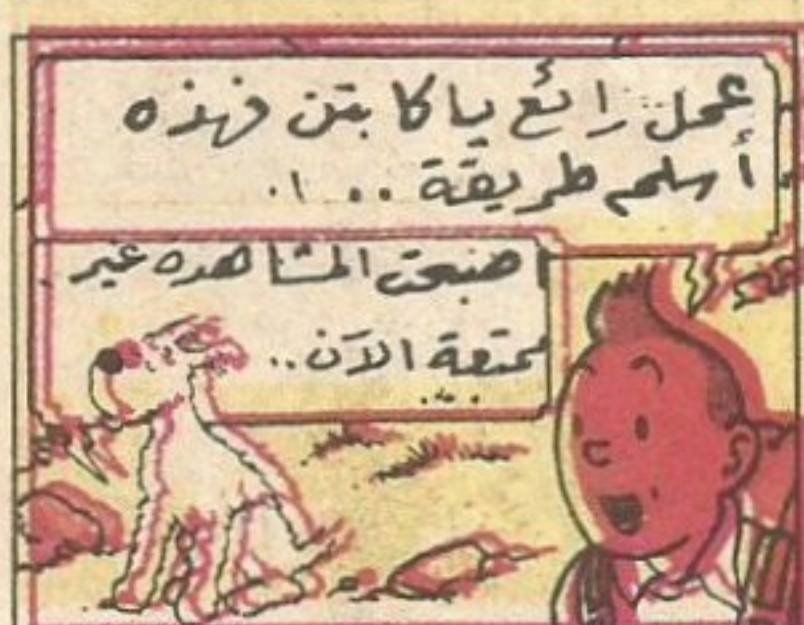 عمل رائع يا كابتن فهذه
أسلم طريقة . . ! .
اصبحت المشاهده غير
ممتعة الآن . .